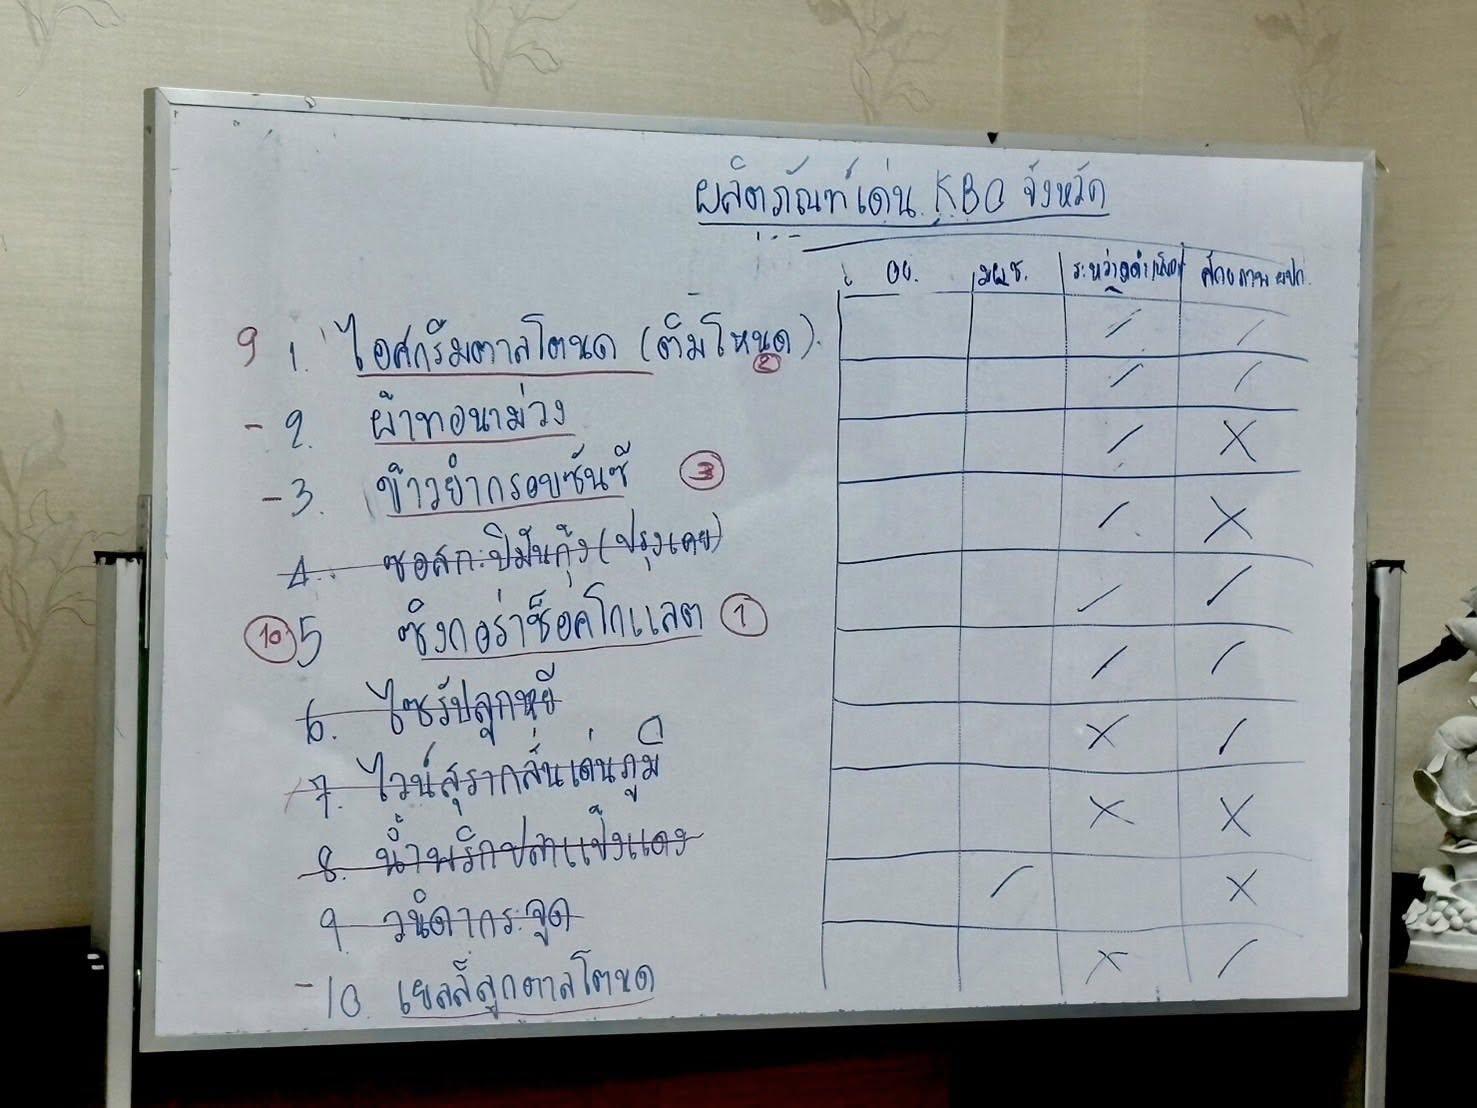 ผลิตภัณฑ์เด่น KBO จังหวัด
อย. มผช. ระหว่างดำเนิน ศักยภาพ ผปก.
9 1. ไอศกรีมตาลโตนด (ติมโหนด). / /
②
- 2. ผ้าทอนาม่วง / /
- 3. ข้าวยำกรอบซันซี ③ / X
4. ซอสกะปิมันกุ้ง (ปรุงเคย) / X
⑩ 5 ซิงกอร่าช็อคโกแลต ① / /
6. ไซรัปลูกหยี / /
7. ไวน์สุรากลั่นเด่นภูมิ X /
8. น้ำพริกปลาแป้งแดง X X
9 วนิดากระจูด / X
- 10. เยลลี่ลูกตาลโตนด X /